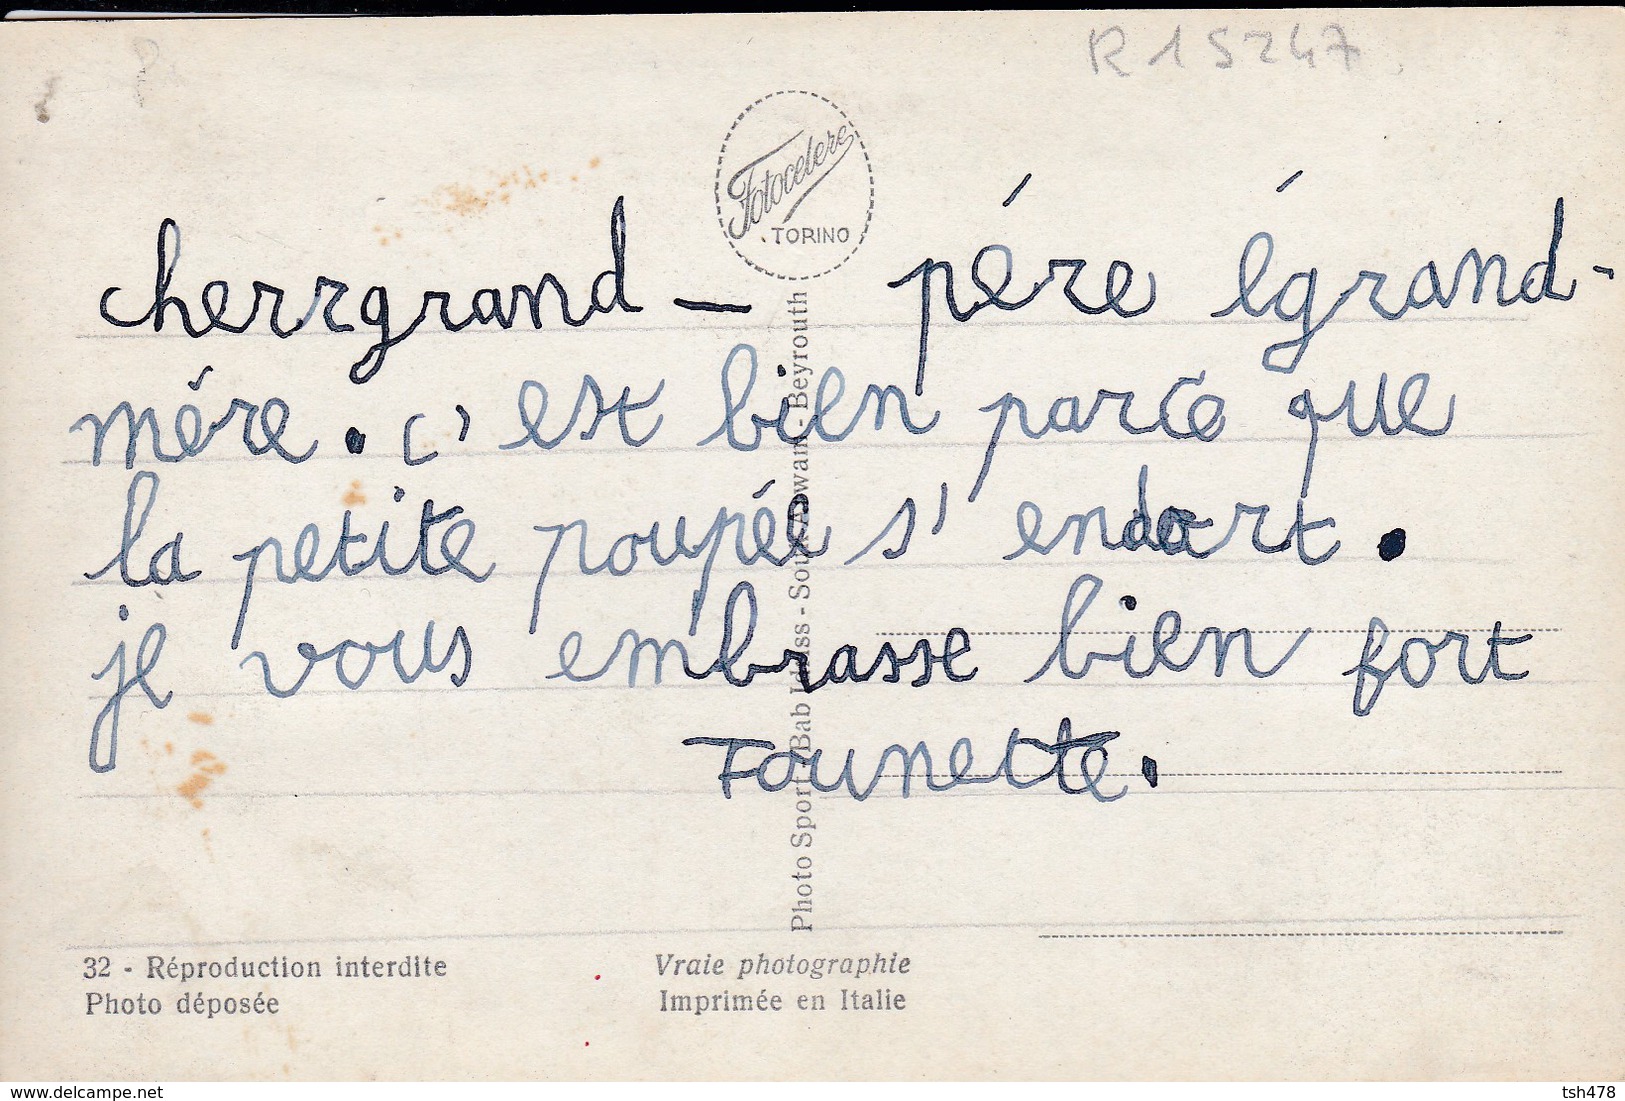 R 15247
Fotocelere
TORINO
cherrgrand - pére égrand-
mére. c' est bien parce que
la petite poupée s' endort.
je vous embrasse bien fort
Founette.
Photo Sport Bab Idriss - Souk Ayass - Beyrouth
32 - Réproduction interdite
Photo déposée
Vraie photographie
Imprimée en Italie
www.delcampe.net
tsh478